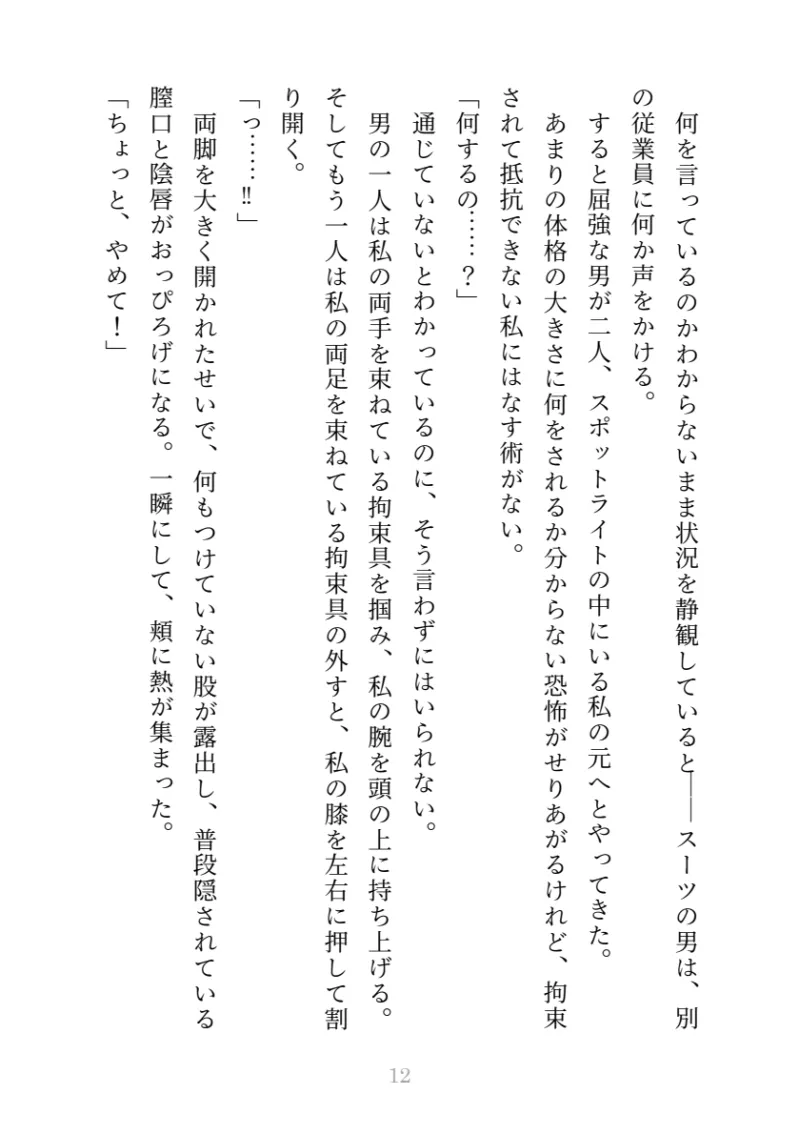 何を言っているのかわからないまま状況を静観していると――スーツの男は、別
の従業員に何か声をかける。
すると屈強な男が二人、スポットライトの中にいる私の元へとやってきた。
あまりの体格の大きさに何をされるか分からない恐怖がせりあがるけれど、拘束
されて抵抗できない私にはなす術がない。
「何するの……？」
通じていないとわかっているのに、そう言わずにはいられない。
男の一人は私の両手を束ねている拘束具を掴み、私の腕を頭の上に持ち上げる。
そしてもう一人は私の両足を束ねている拘束具の外すと、私の膝を左右に押して割
り開く。
「っ……‼」
両脚を大きく開かれたせいで、何もつけていない股が露出し、普段隠されている
膣口と陰唇がおっぴろげになる。一瞬にして、頬に熱が集まった。
「ちょっと、やめて！」
12